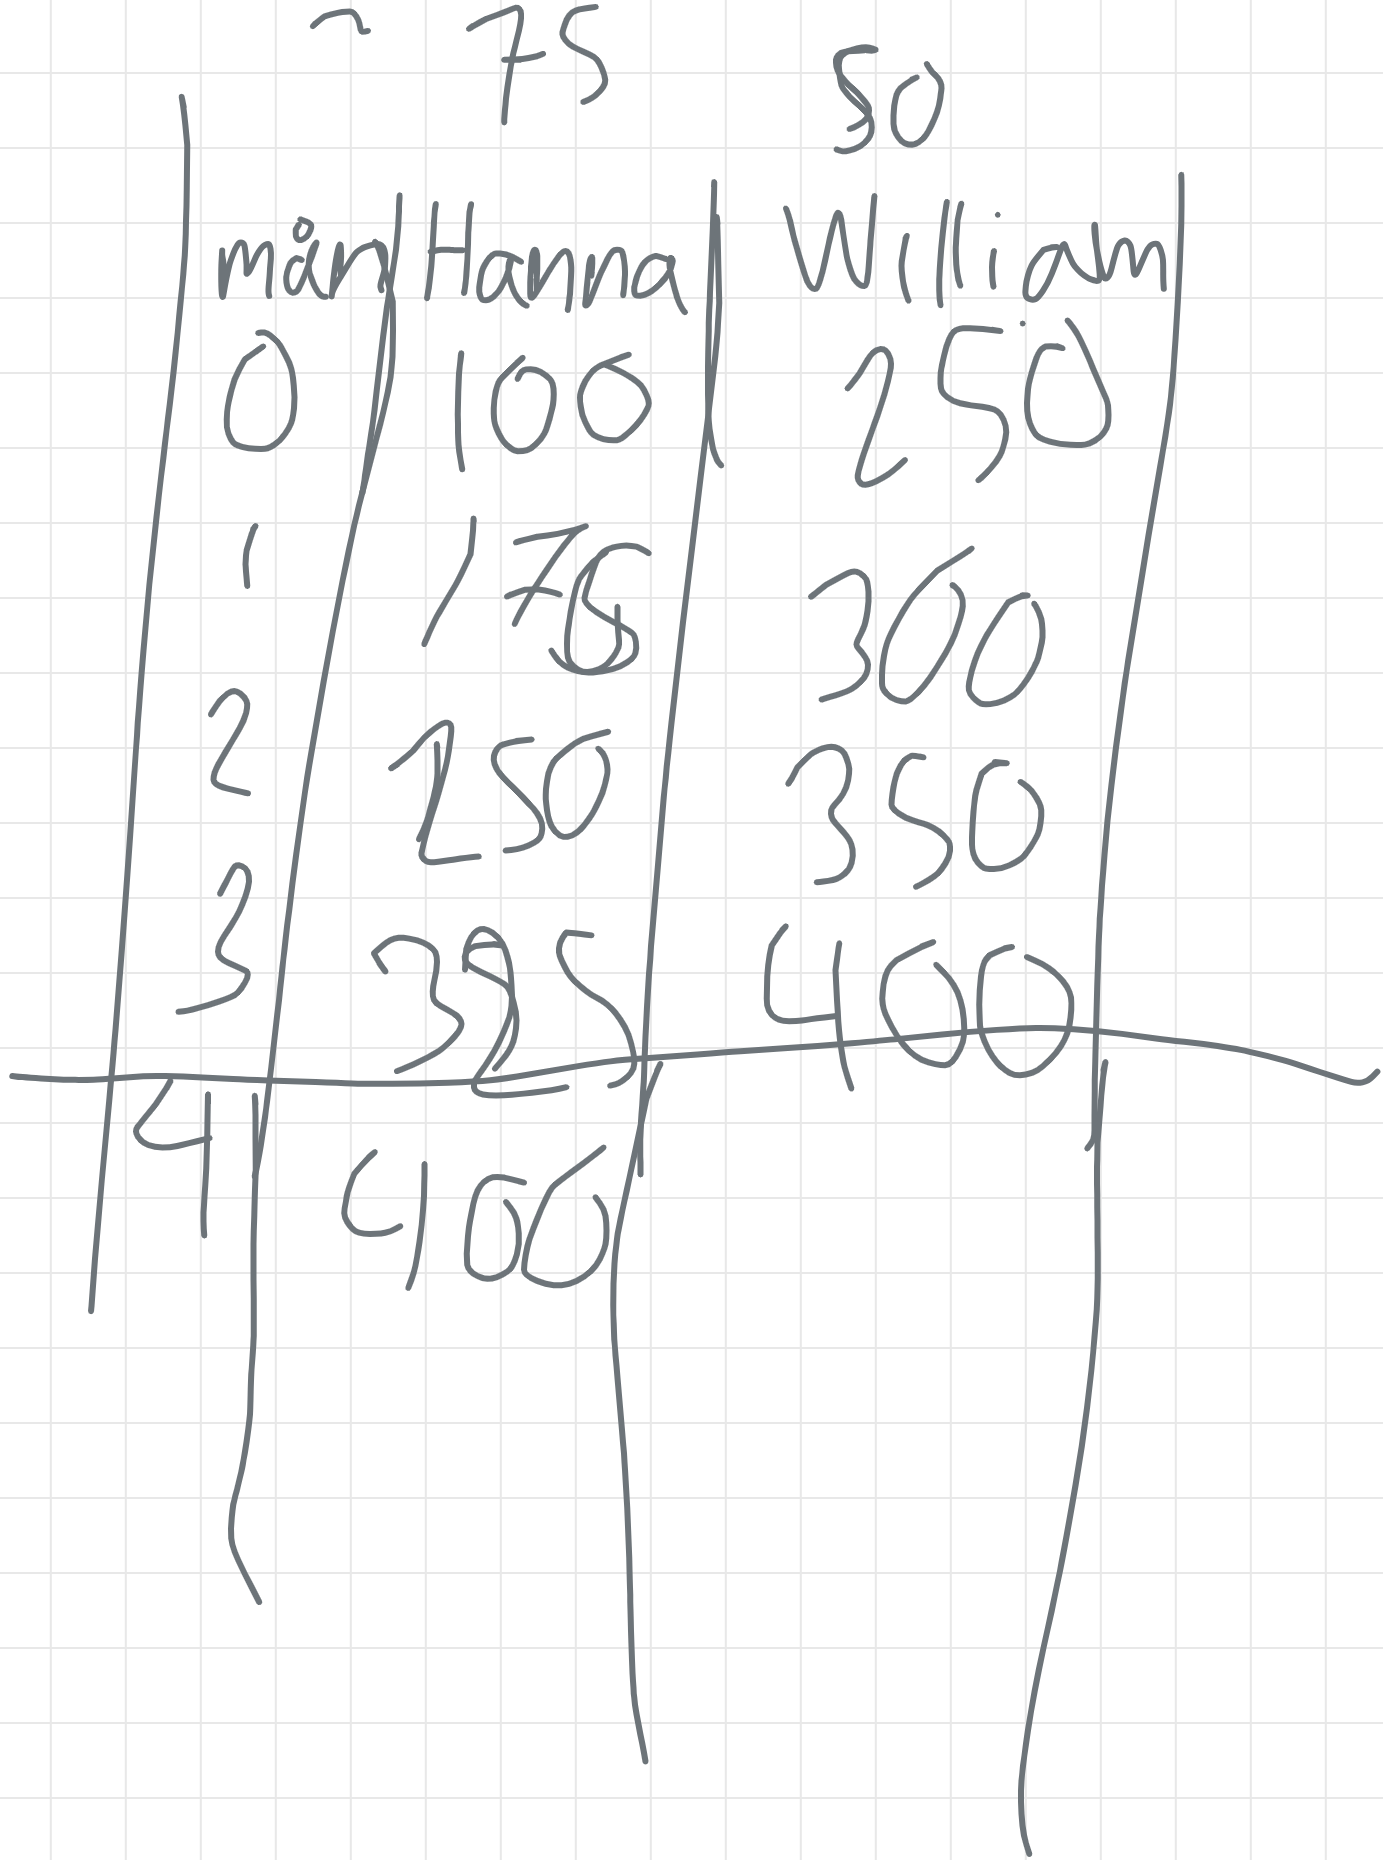 75 50
mån Hanna William
0 100 250
1 175 300
2 250 350
3 325 400
4 400